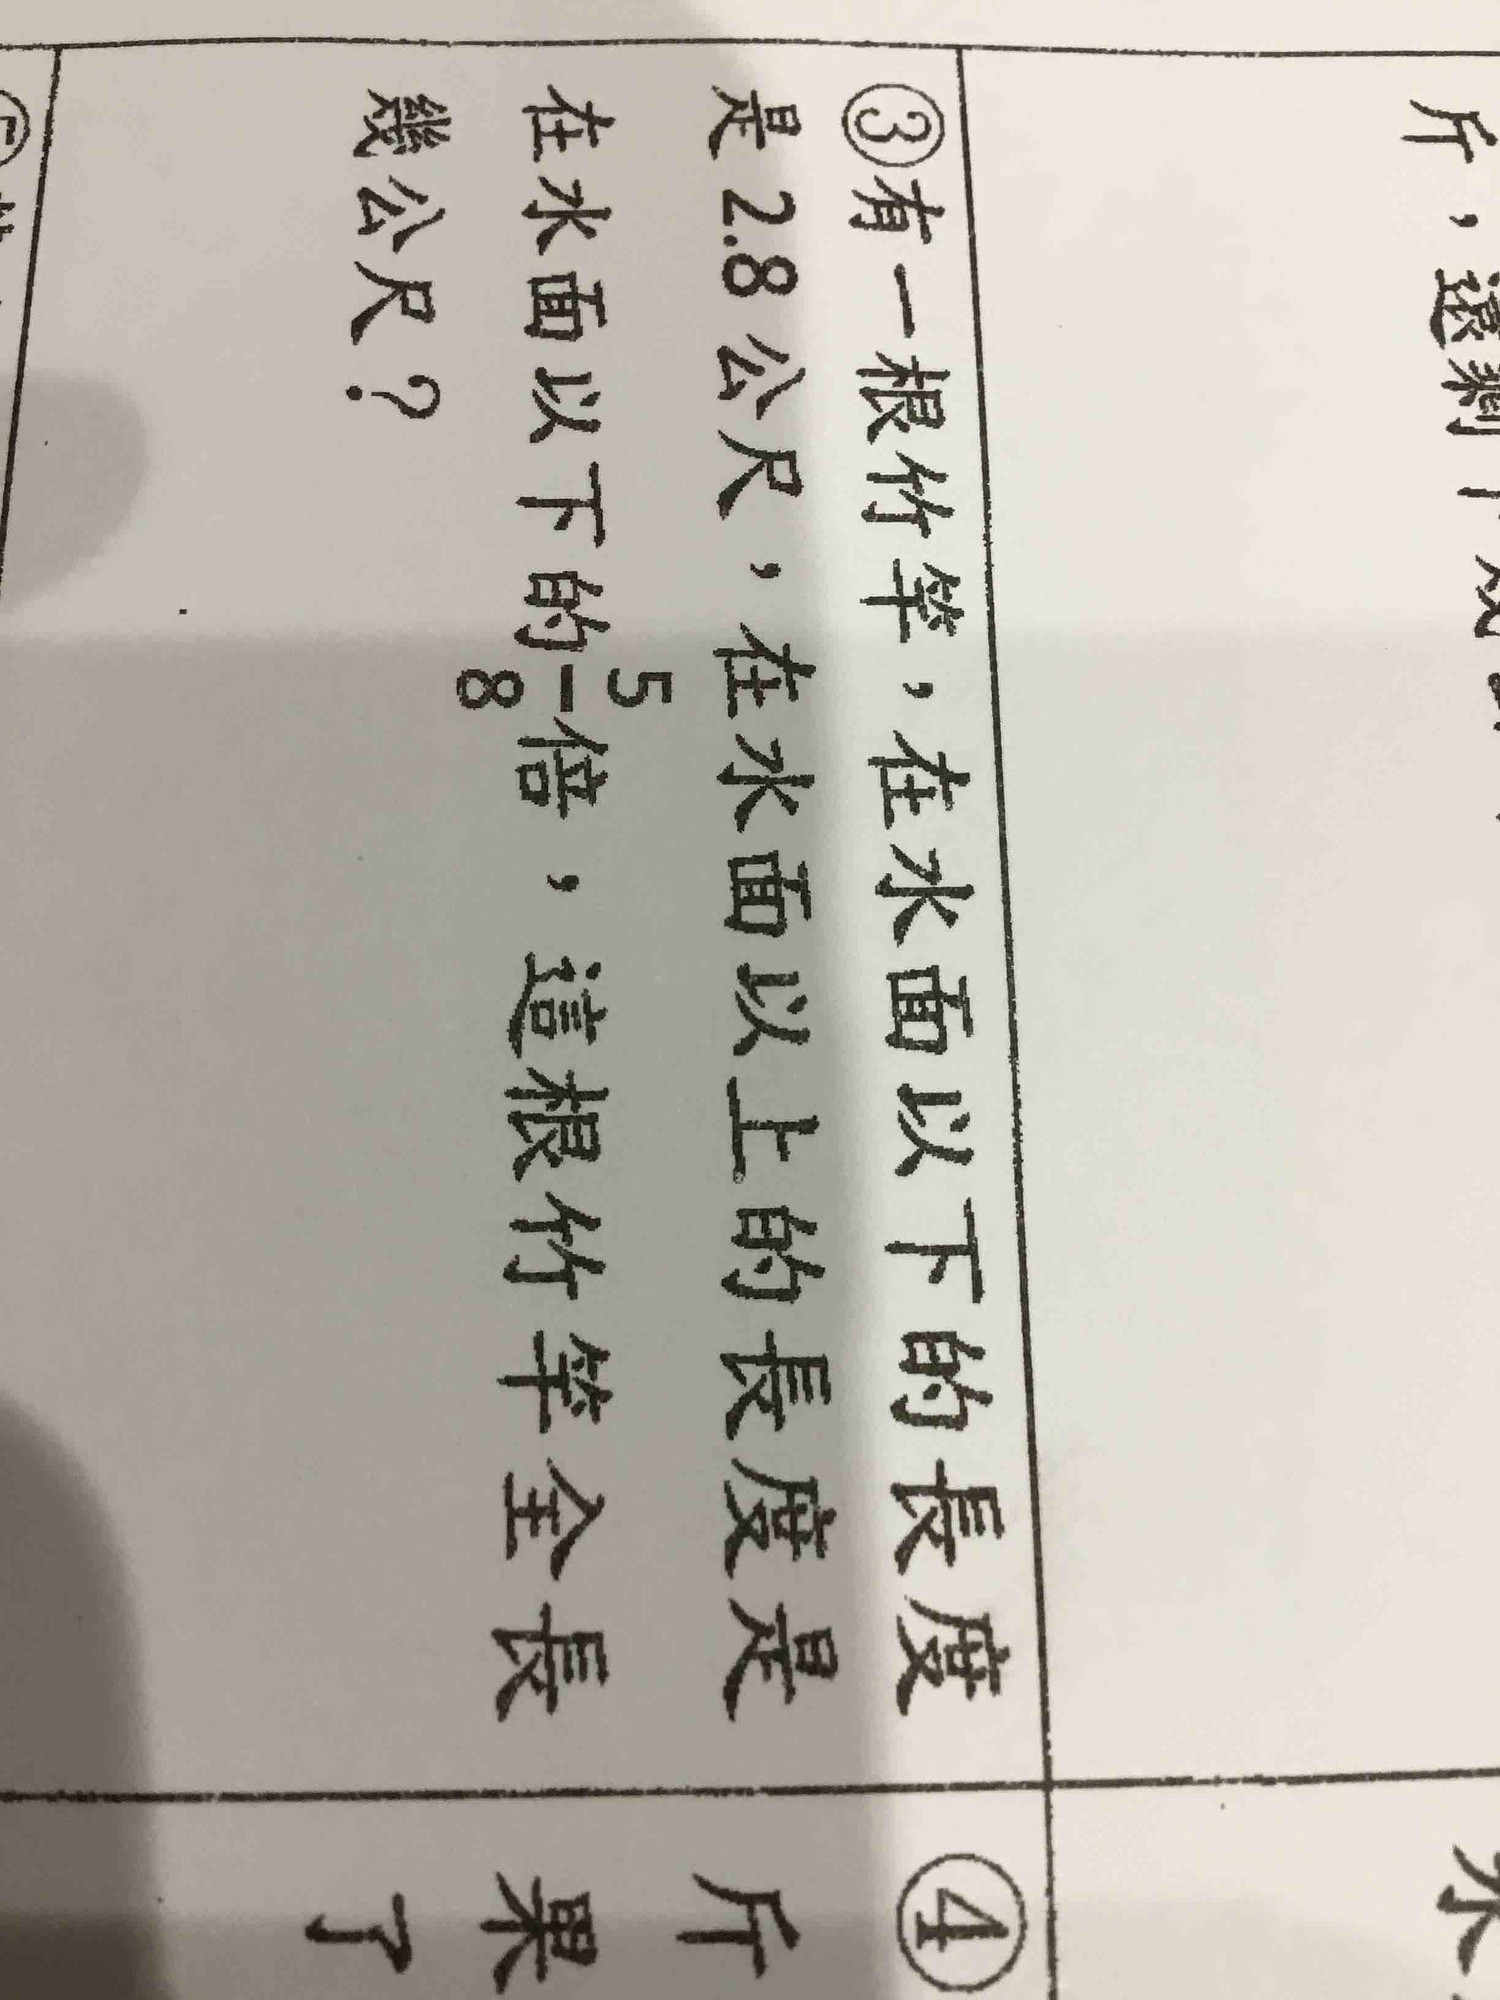 斤，還剩下
③有一根竹竿，在水面以下的長度
是 2.8 公尺，在水面以上的長度是
在水面以下的5/8倍，這根竹竿全長
幾公尺？
④
斤
果
了